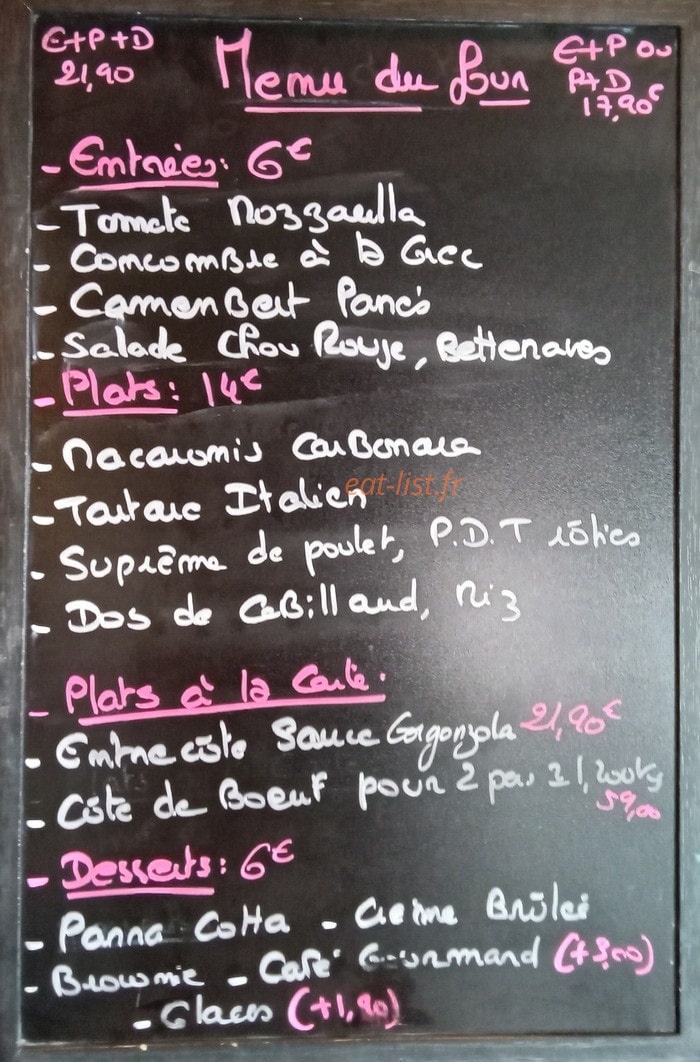 E+P+D
21,90
Menu du Jour
E+P ou
P+D
17,90€
- Entrées: 6€
- Tomate Mozzarella
- Concombre à la Grec
- Camembert Panés
- Salade Chou Rouge, Betteraves
- Plats: 14€
- Macaronis Carbonara
- Tartare Italien
eat-list.fr
- Suprême de poulet, P.D.T rôties
- Dos de Cabillaud, Riz
- Plats à la Carte.
- Entrecôte Sauce Gorgonzola 21,90€
- Côte de Boeuf pour 2 pers 1,200kg
59,00
- Desserts: 6€
- Panna Cotta - Crème Brûlée
- Brownie - Café Gourmand (+3,00)
- Glaces (+1,90)